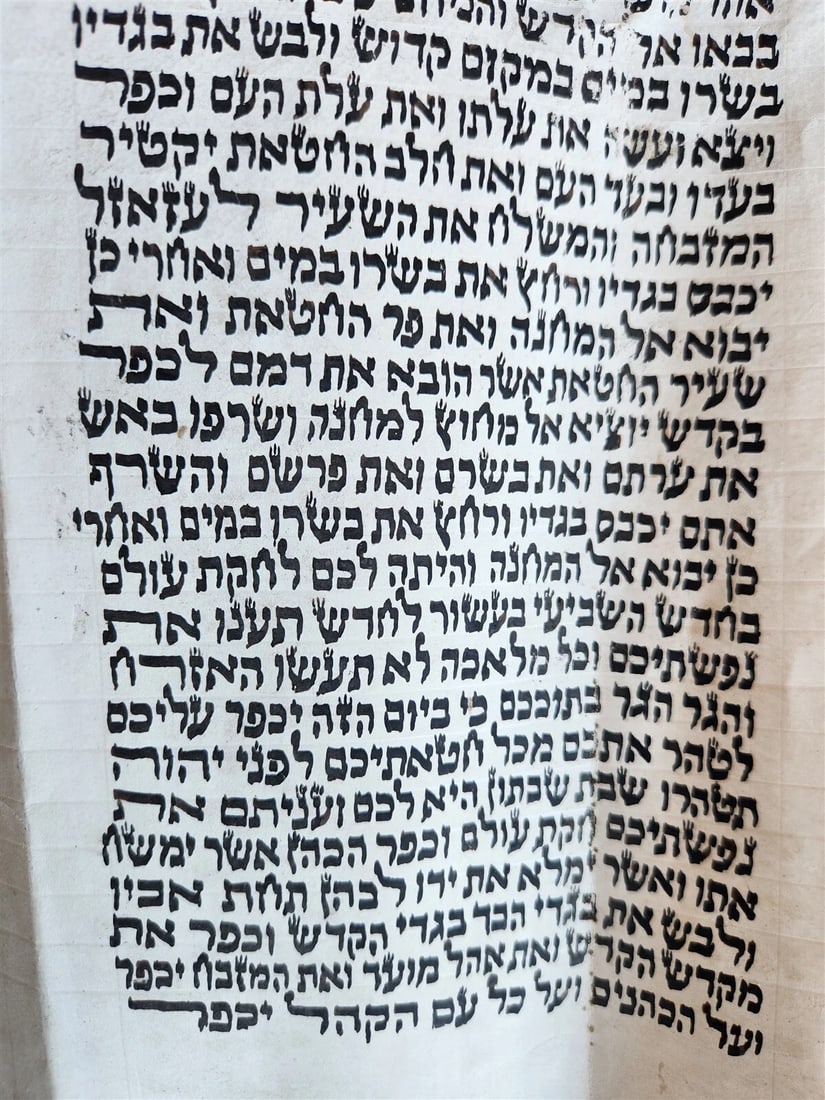 בבאו אל הקדש והניחם
בשרו במים במקום קדוש ולבש את בגדיו
ויצא ועשה את עלתו ואת עלת העם וכפר
בעדו ובעד העם ואת חלב החטאת יקטיר
המזבחה והמשלח את השעיר לעזאזל
יכבס בגדיו ורחץ את בשרו במים ואחרי כן
יבוא אל המחנה ואת פר החטאת ואת
שעיר החטאת אשר הובא את דמם לכפר
בקדש יוציא אל מחוץ למחנה ושרפו באש
את ערתם ואת בשרם ואת פרשם והשרף
אתם יכבס בגדיו ורחץ את בשרו במים ואחרי
כן יבוא אל המחנה והיתה לכם לחקת עולם
בחדש השביעי בעשור לחדש תענו את
נפשתיכם וכל מלאכה לא תעשו האזרח
והגר הגר בתוככם כי ביום הזה יכפר עליכם
לטהר אתכם מכל חטאתיכם לפני יהוה
תטהרו שבת שבתון היא לכם ועניתם את
נפשתיכם חקת עולם וכפר הכהן אשר ימשח
אתו ואשר ימלא את ידו לכהן תחת אביו
ולבש את בגדי הבד בגדי הקדש וכפר את
מקדש הקדש ואת אהל מועד ואת המזבח יכפר
ועל הכהנים ועל כל עם הקהל יכפר